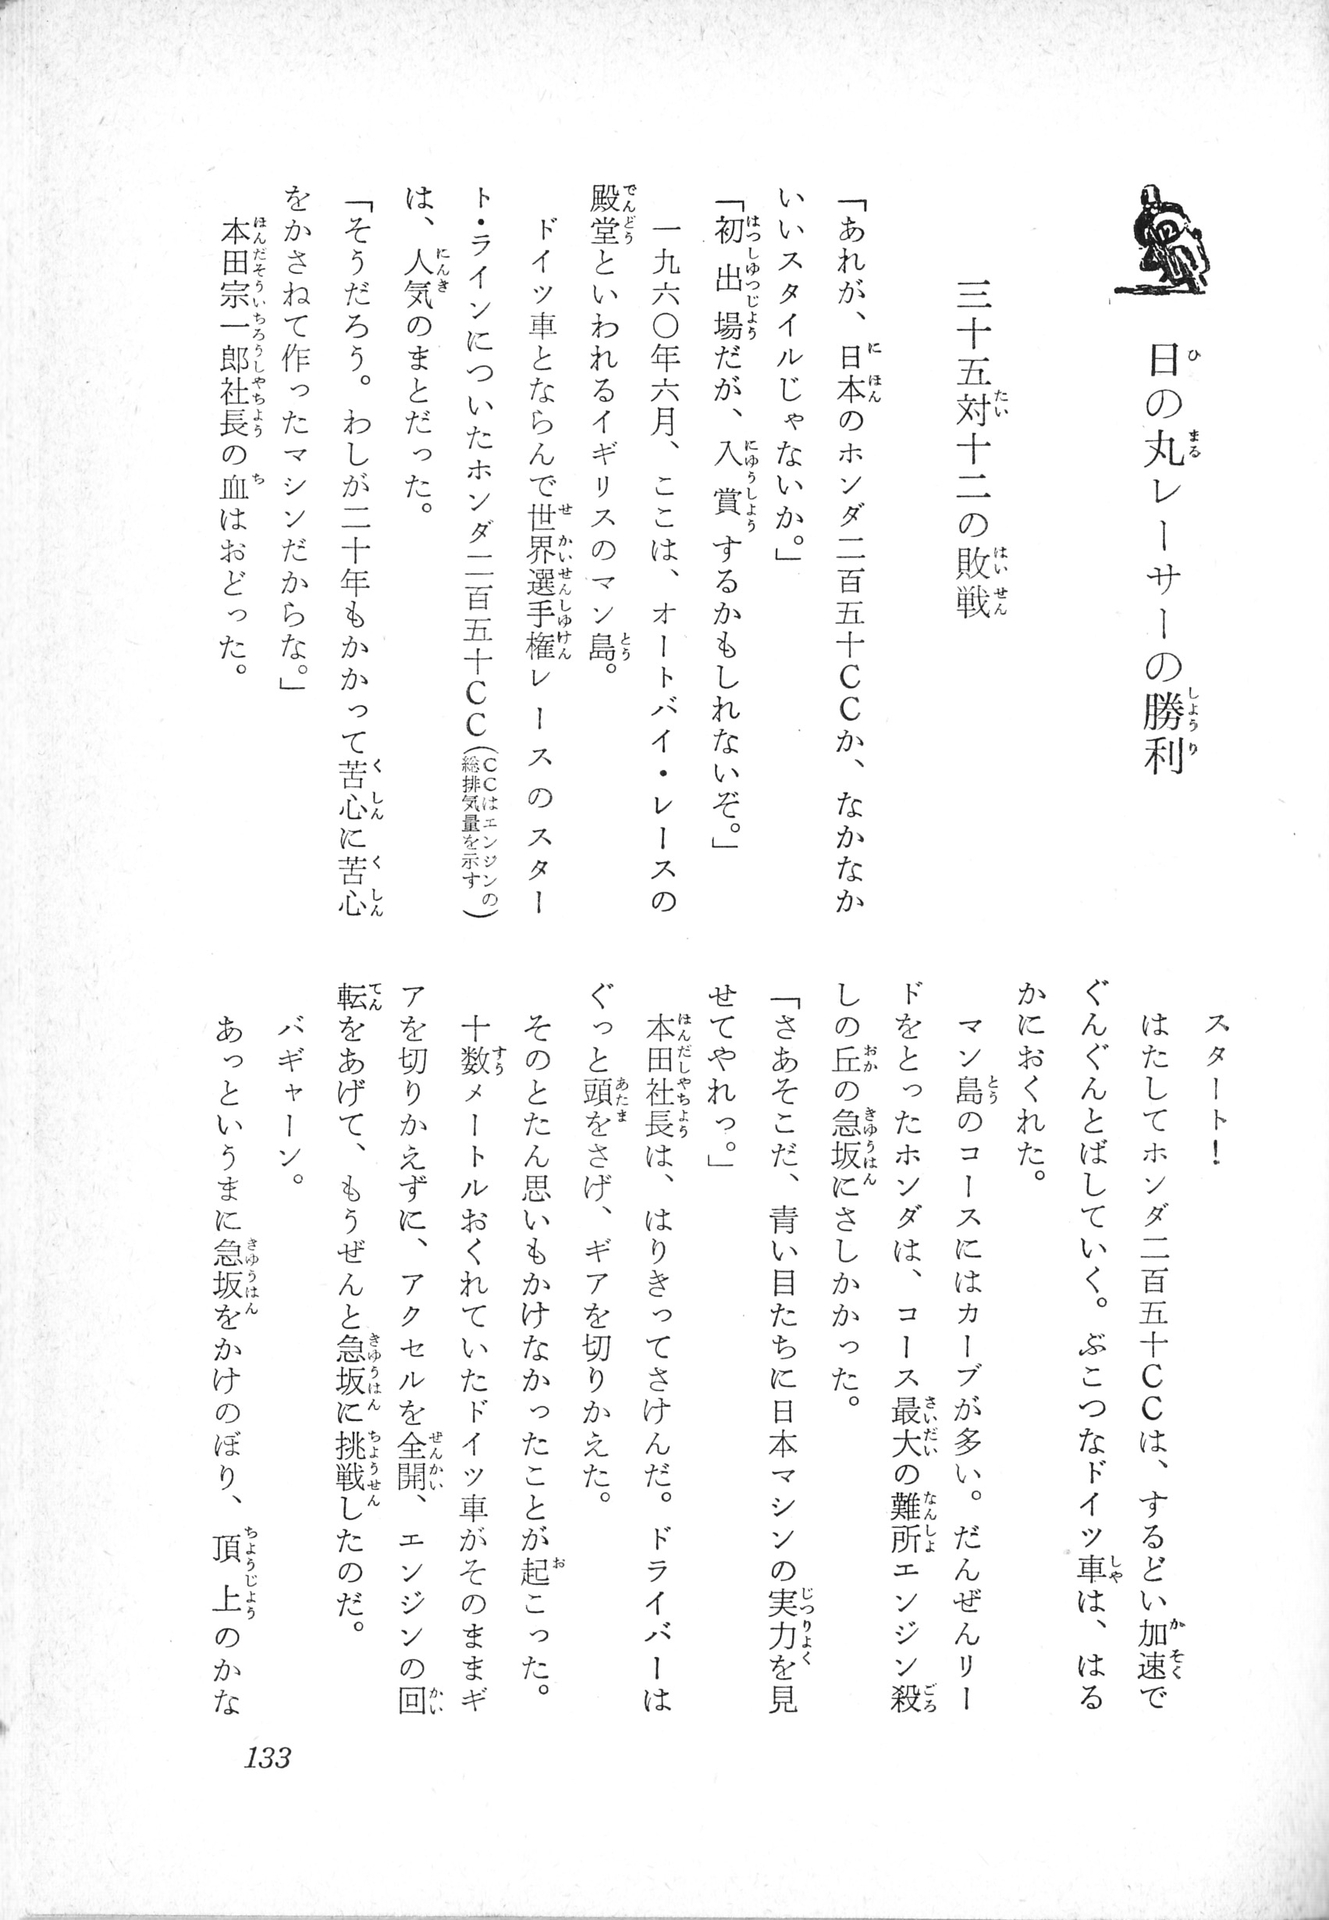 日の丸レーサーの勝利
三十五対十二の敗戦
「あれが、日本のホンダ二百五十CCか、なかなか
いいスタイルじゃないか。」
「初出場だが、入賞するかもしれないぞ。」
一九六〇年六月、ここは、オートバイ・レースの
殿堂といわれるイギリスのマン島。
ドイツ車とならんで世界選手権レースのスター
ト・ラインについたホンダ二百五十CC(CCはエンジンの総排気量を示す)
は、人気のまとだった。
「そうだろう。わしが二十年もかかって苦心に苦心
をかさねて作ったマシンだからな。」
本田宗一郎社長の血はおどった。
スタート!
はたしてホンダ二百五十CCは、するどい加速で
ぐんぐんとばしていく。ぶこつなドイツ車は、はる
かにおくれた。
マン島のコースにはカーブが多い。だんぜんリー
ドをとったホンダは、コース最大の難所エンジン殺
しの丘の急坂にさしかかった。
「さあそこだ、青い目たちに日本マシンの実力を見
せてやれっ。」
本田社長は、はりきってさけんだ。ドライバーは
ぐっと頭をさげ、ギアを切りかえた。
そのとたん思いもかけなかったことが起こった。
十数メートルおくれていたドイツ車がそのままギ
アを切りかえずに、アクセルを全開、エンジンの回
転をあげて、もうぜんと急坂に挑戦したのだ。
バギャーン。
あっというまに急坂をかけのぼり、頂上のかな
133